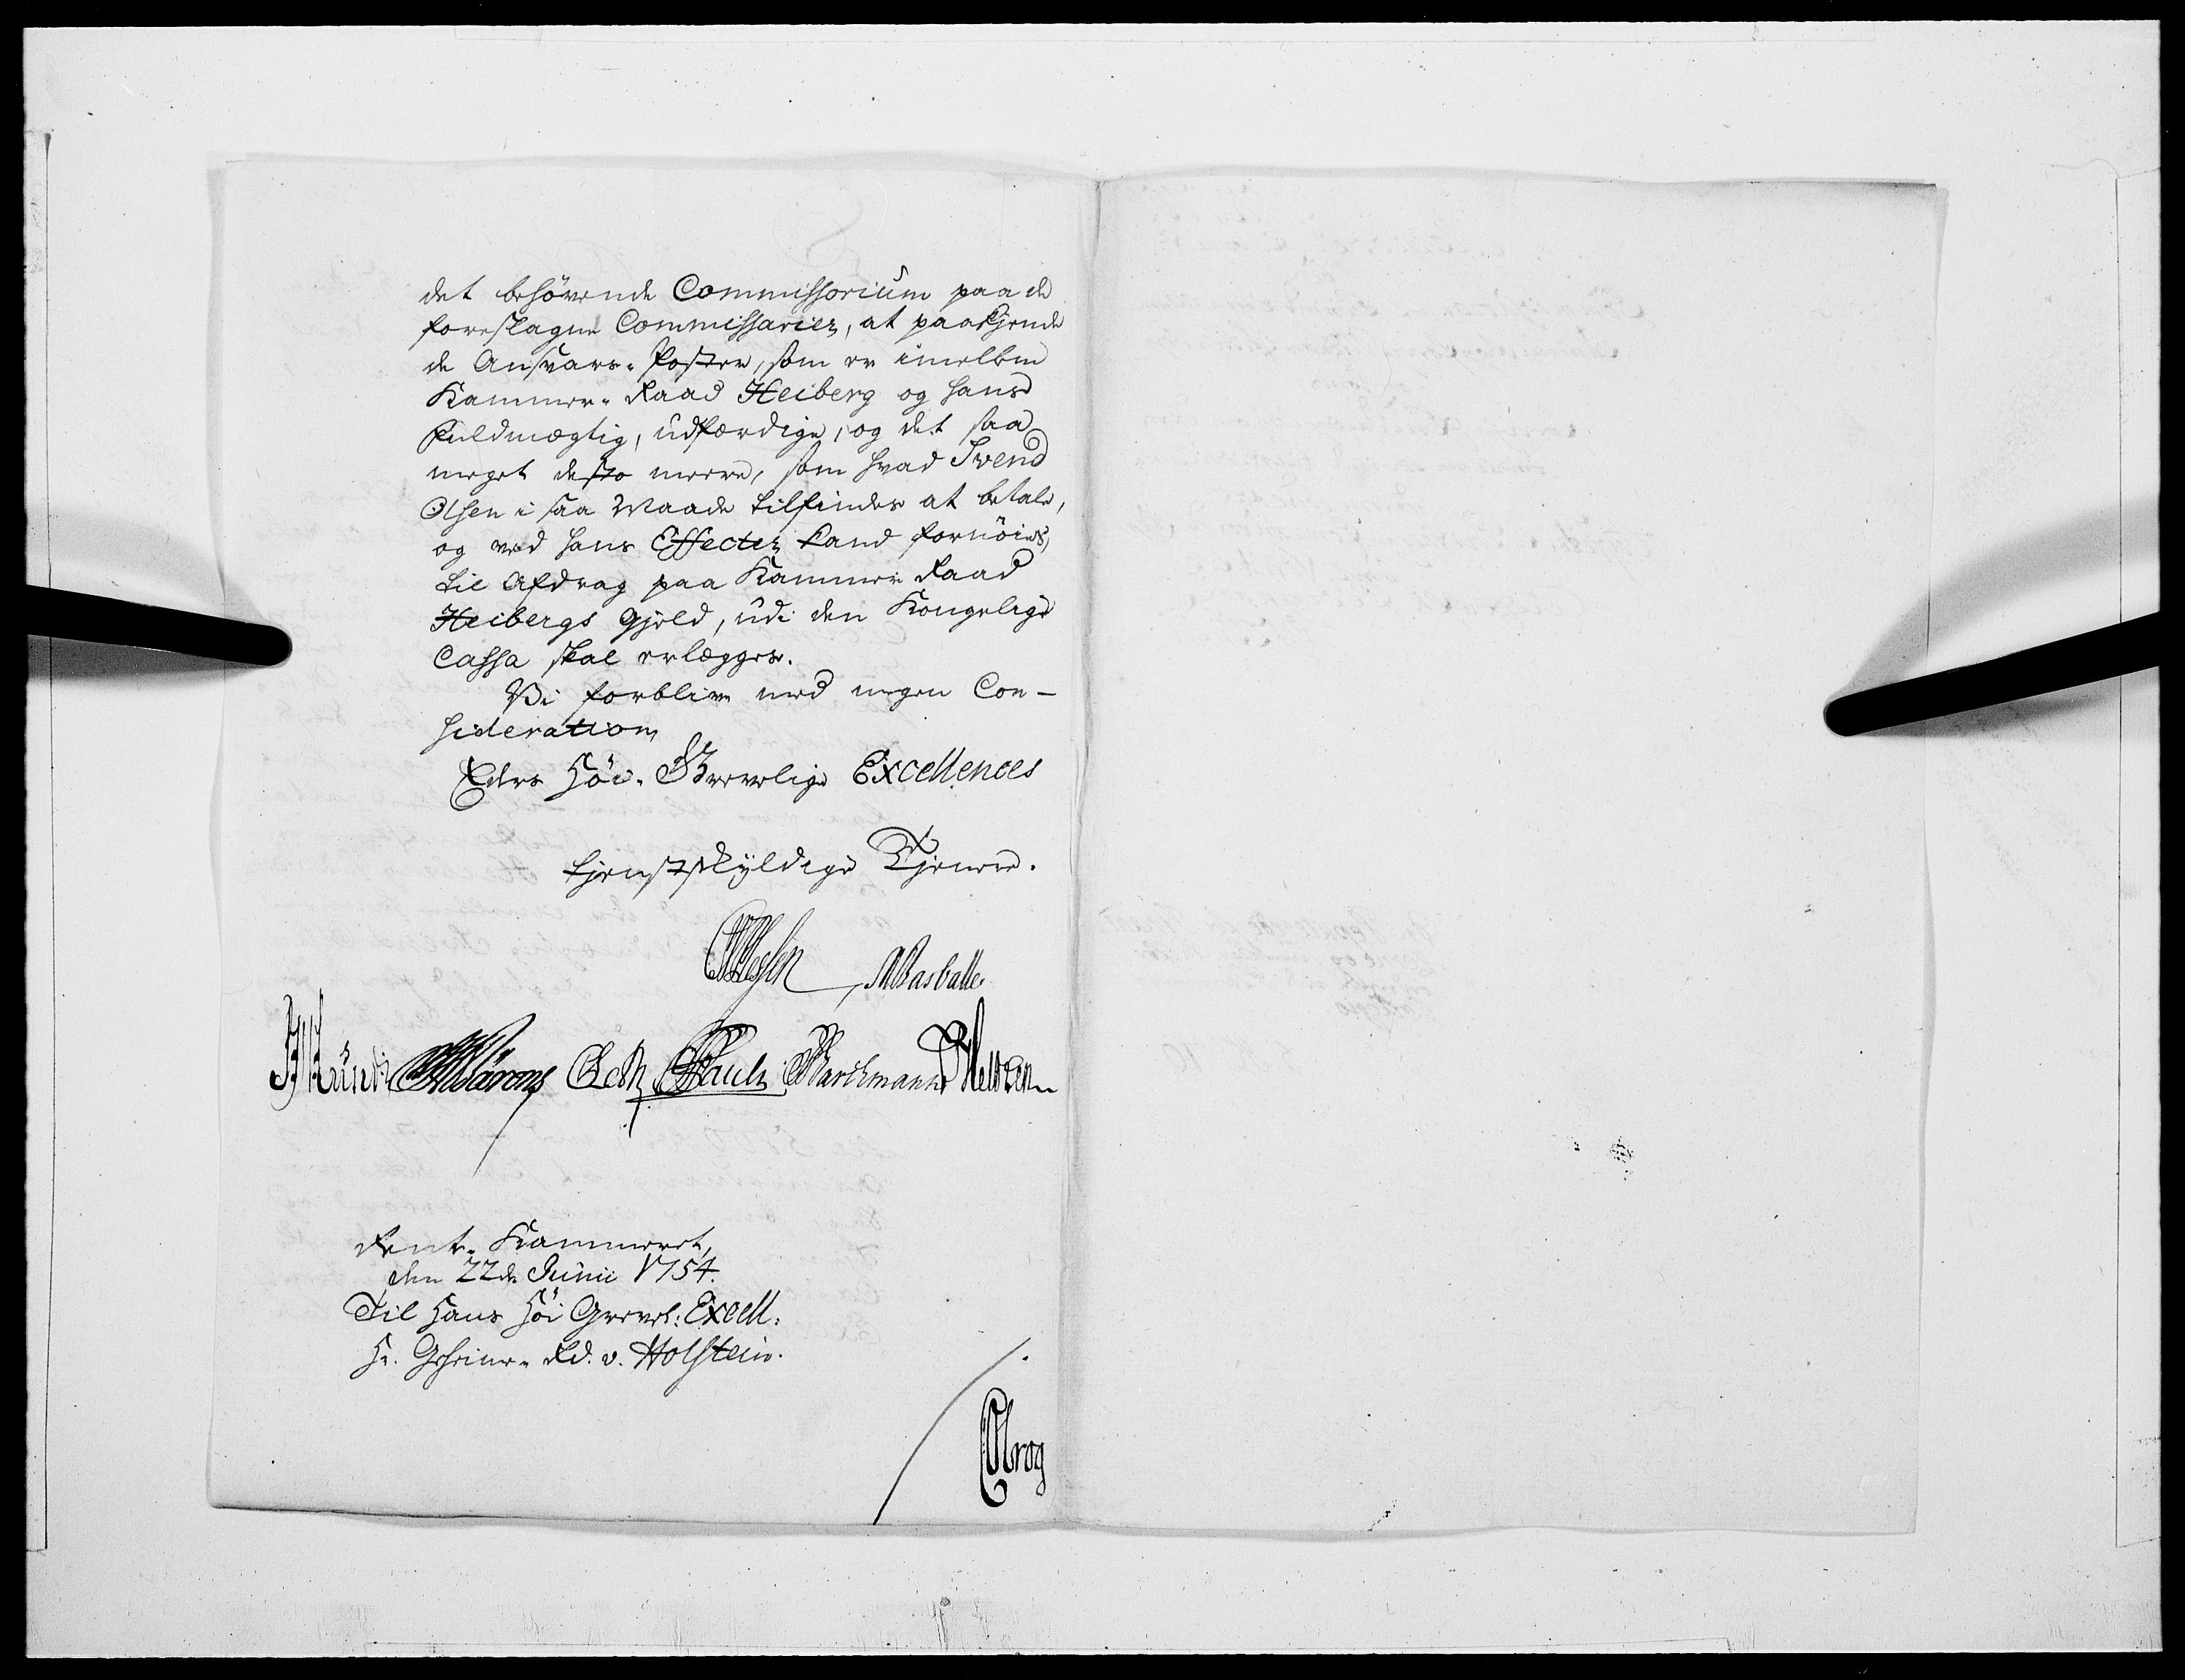 det behövende Commissorium paa de
foreslagne Commissarier, at paakjende
de Ansvars-Poster, som er imellem
Kammer-Raad Heiberg og hans
Fuldmægtig, udfærdige, og det saa
meget desto meere, som hvad Svend
Olsen i saa Maade tilfindes at betale,
og ved hans Effecter kand fornöies,
til Afdrag paa Kammer Raad
Heibergs Gjeld, udi den Kongelige
Cassa skal erlægges.
Vi forblive med megen Con-
sideration
Eders Höi-Grevelige Excellences
tjenstskyldige Tjenere.
Basballe
Pauli Barchmann Heltzen
Rente-Kammeret,
den 22de Junii 1754.
Til Hans Höi Grevel: Excell:
Hr. Geheime-Rd. v. Holstein.